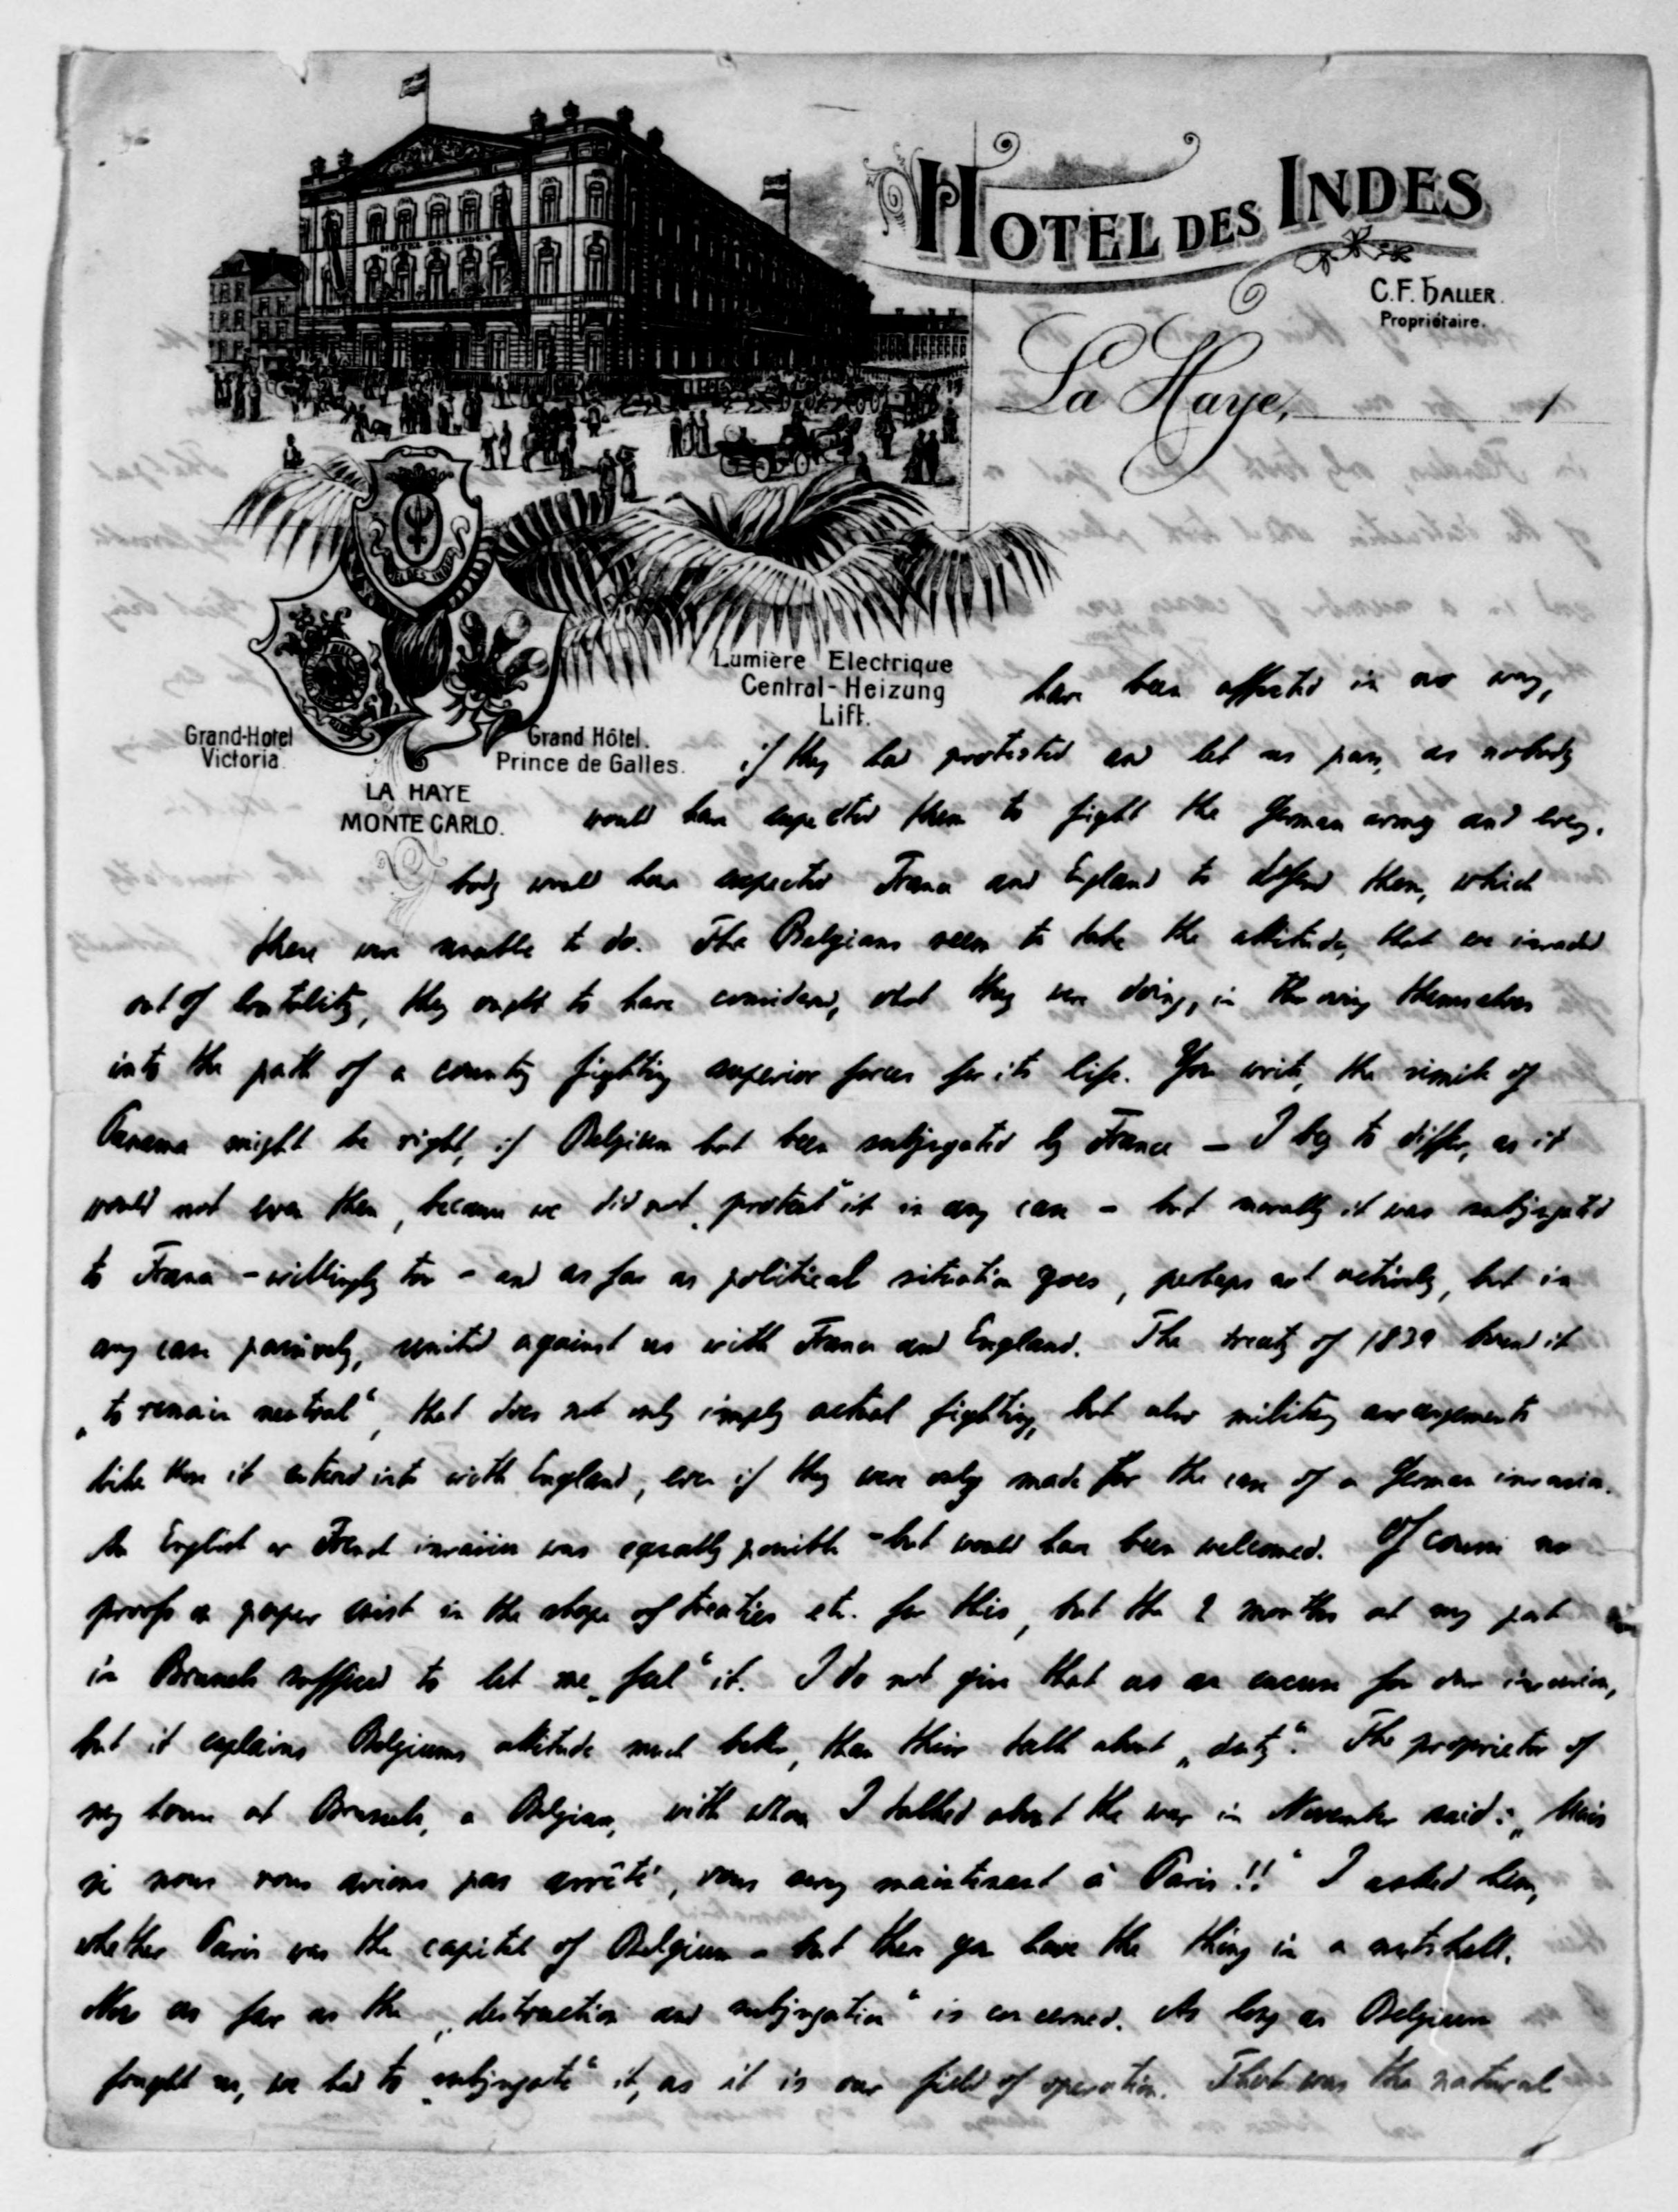 HOTEL DES INDES
HOTEL DES INDES
C.F. HALLER.
Propriétaire.
La Haye, 1
DES INDES
Lumière Electrique
Central-Heizung
Lift.
Grand-Hotel
Victoria
Grand Hôtel.
Prince de Galles.
LA HAYE
MONTE CARLO.
have been affected in no way,
if they had protested and let us pass, as nobody
would have expected them to fight the German army and every-
body would have expected France and England to defend them, which
these were unable to do. The Belgians seem to take the attitude, that we invaded
out of brutality, they ought to have considered, what they were doing, in throwing themselves
into the path of a country fighting superior forces for its life. You write, the simile of
Panama might be right, if Belgium had been subjugated by France – I beg to differ, as it
would not even then, because we did not „protect“ it in any case – but morally it was subjugated
to France – willingly too – and as far as political situation goes, perhaps not actively, but in
any case passively, united against us with France and England. The treaty of 1839 bound it
„to remain neutral“, that does not only imply actual fighting, but also military arrangements
like those it entered into with England, even if they were only made for the case of a German invasion.
An English or French invasion was equally possible – but would have been welcomed. Of course no
proofs on paper exist in the shape of treaties etc. for this, but the 2 months at my post
in Brussels sufficed to let me „feel“ it. I do not give that as an excuse for our invasion,
but it explains Belgiums attitude much better, than their talk about „duty“. The proprietor of
my house at Brussels, a Belgian, with whom I talked about the war in November said: „Mais
si nous vous avions pas arrêté, vous serez maintenant à Paris!!“ I asked him,
whether Paris was the capital of Belgium – but there you have the thing in a nutshell.
Now as far as the „destruction and subjugation“ is concerned. As long as Belgium
fought us, we had to „subjugate“ it, as it is our field of operation. That was the natural